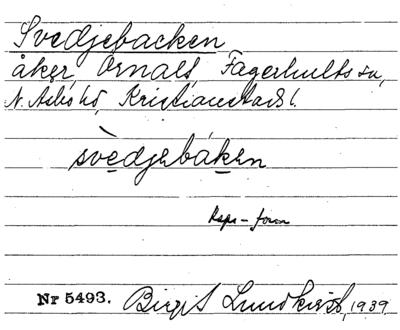 Svedjebacken
åker, Ornalt, Fagerhults sn,
N. Åsbo hd, Kristianstads l.
svèdjebáken
Reps-form
Nr 5493. Birgit Lundkvist, 1939